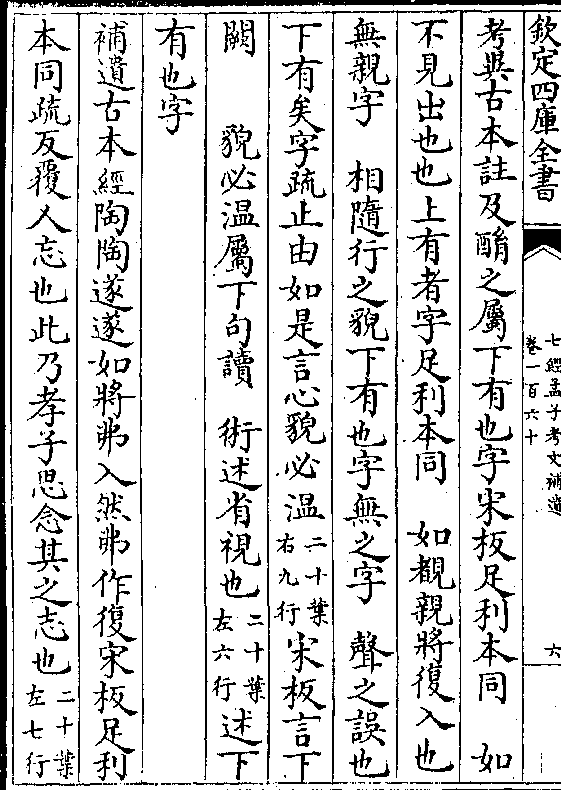 欽定四庫全書
七經孟子考文補遺
卷一百六十
六
考與古本註及酳之屬下有也字宋板足利本同　如
不見出也也上有者字足利本同　如覩親將復入也
無親字　相隨行之貌下有也字無之字　聲之誤也
下有矣字疏止由如是言心貌必温二十葉右九行宋板言下
闕　貌必温屬下句讀　術述省視也二十葉左六行述下
有也字
補遺古本經陶陶遂遂如將弗入然弗作復宋板足利
本同疏反覆人忘也此乃孝子思念其之志也二十葉左七行